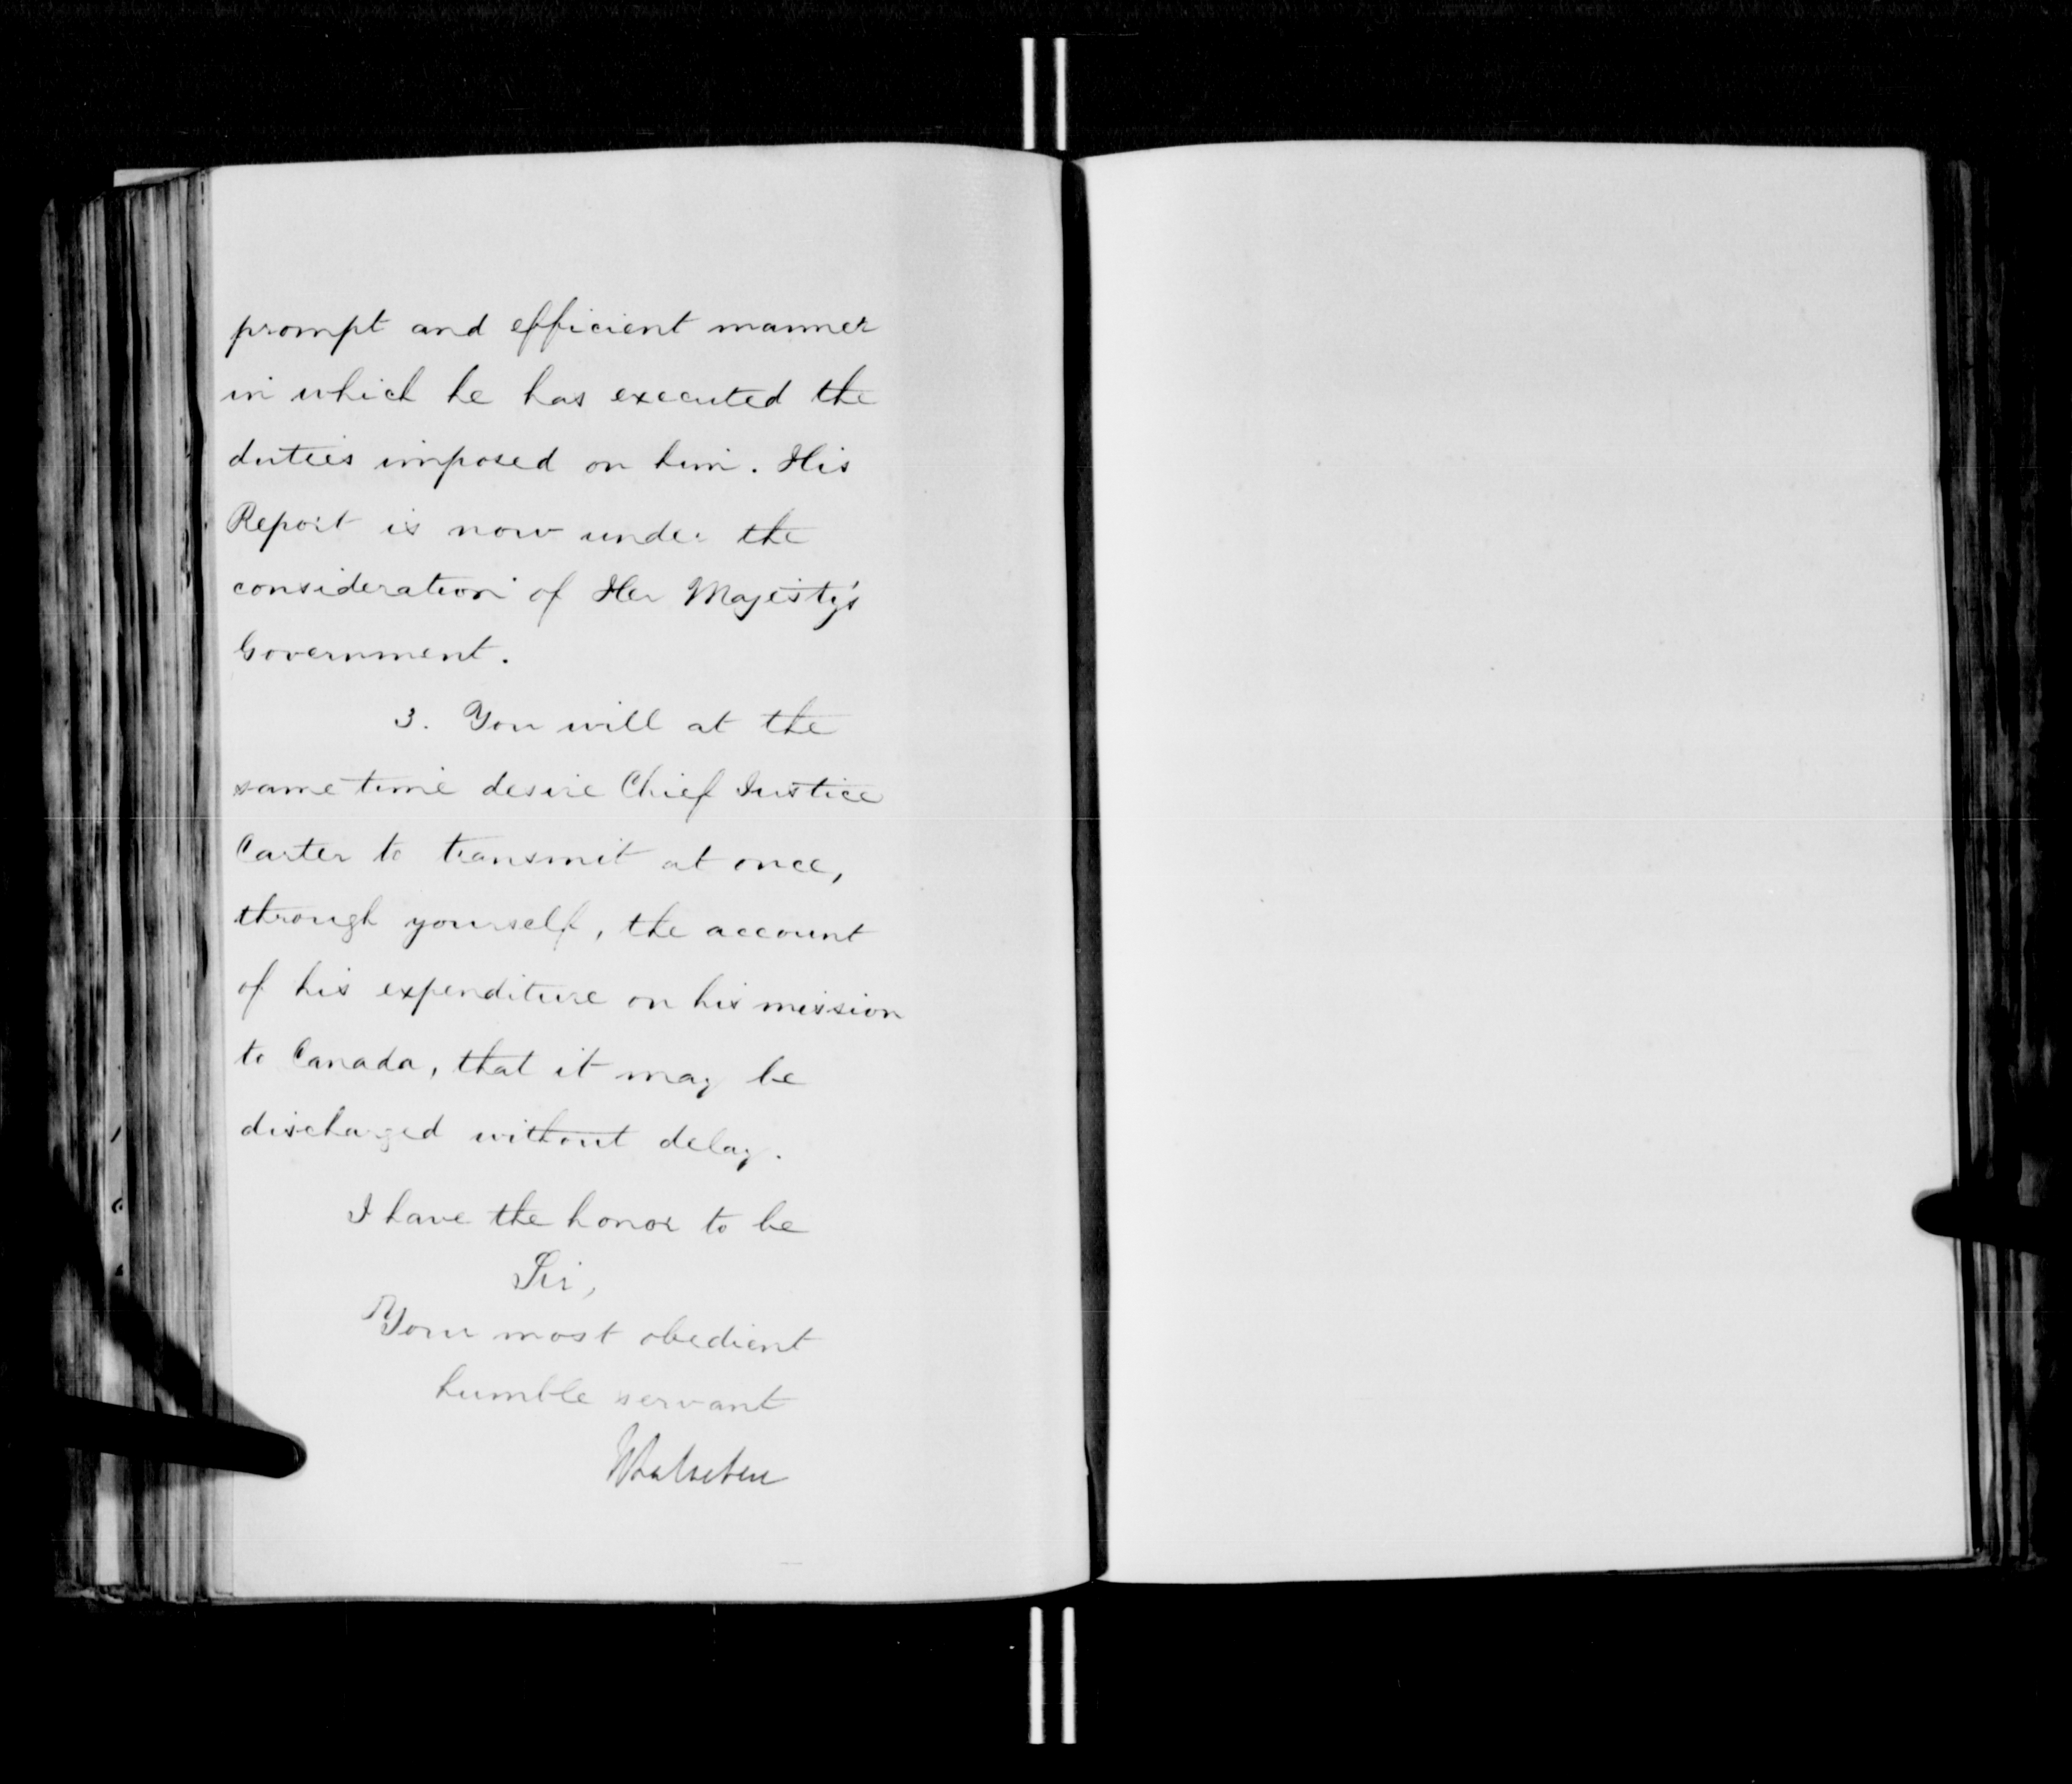 prompt and efficient manner
in which he has executed the
duties imposed on him. His
Report is now under the
consideration of Her Majesty's
Government.
3. You will at the
same time desire Chief Justice
Carter to transmit at once,
through yourself, the account
of his expenditure on his mission
to Canada, that it may be
discharged without delay.
I have the honor to be
Sir,
Your most obedient
humble servant